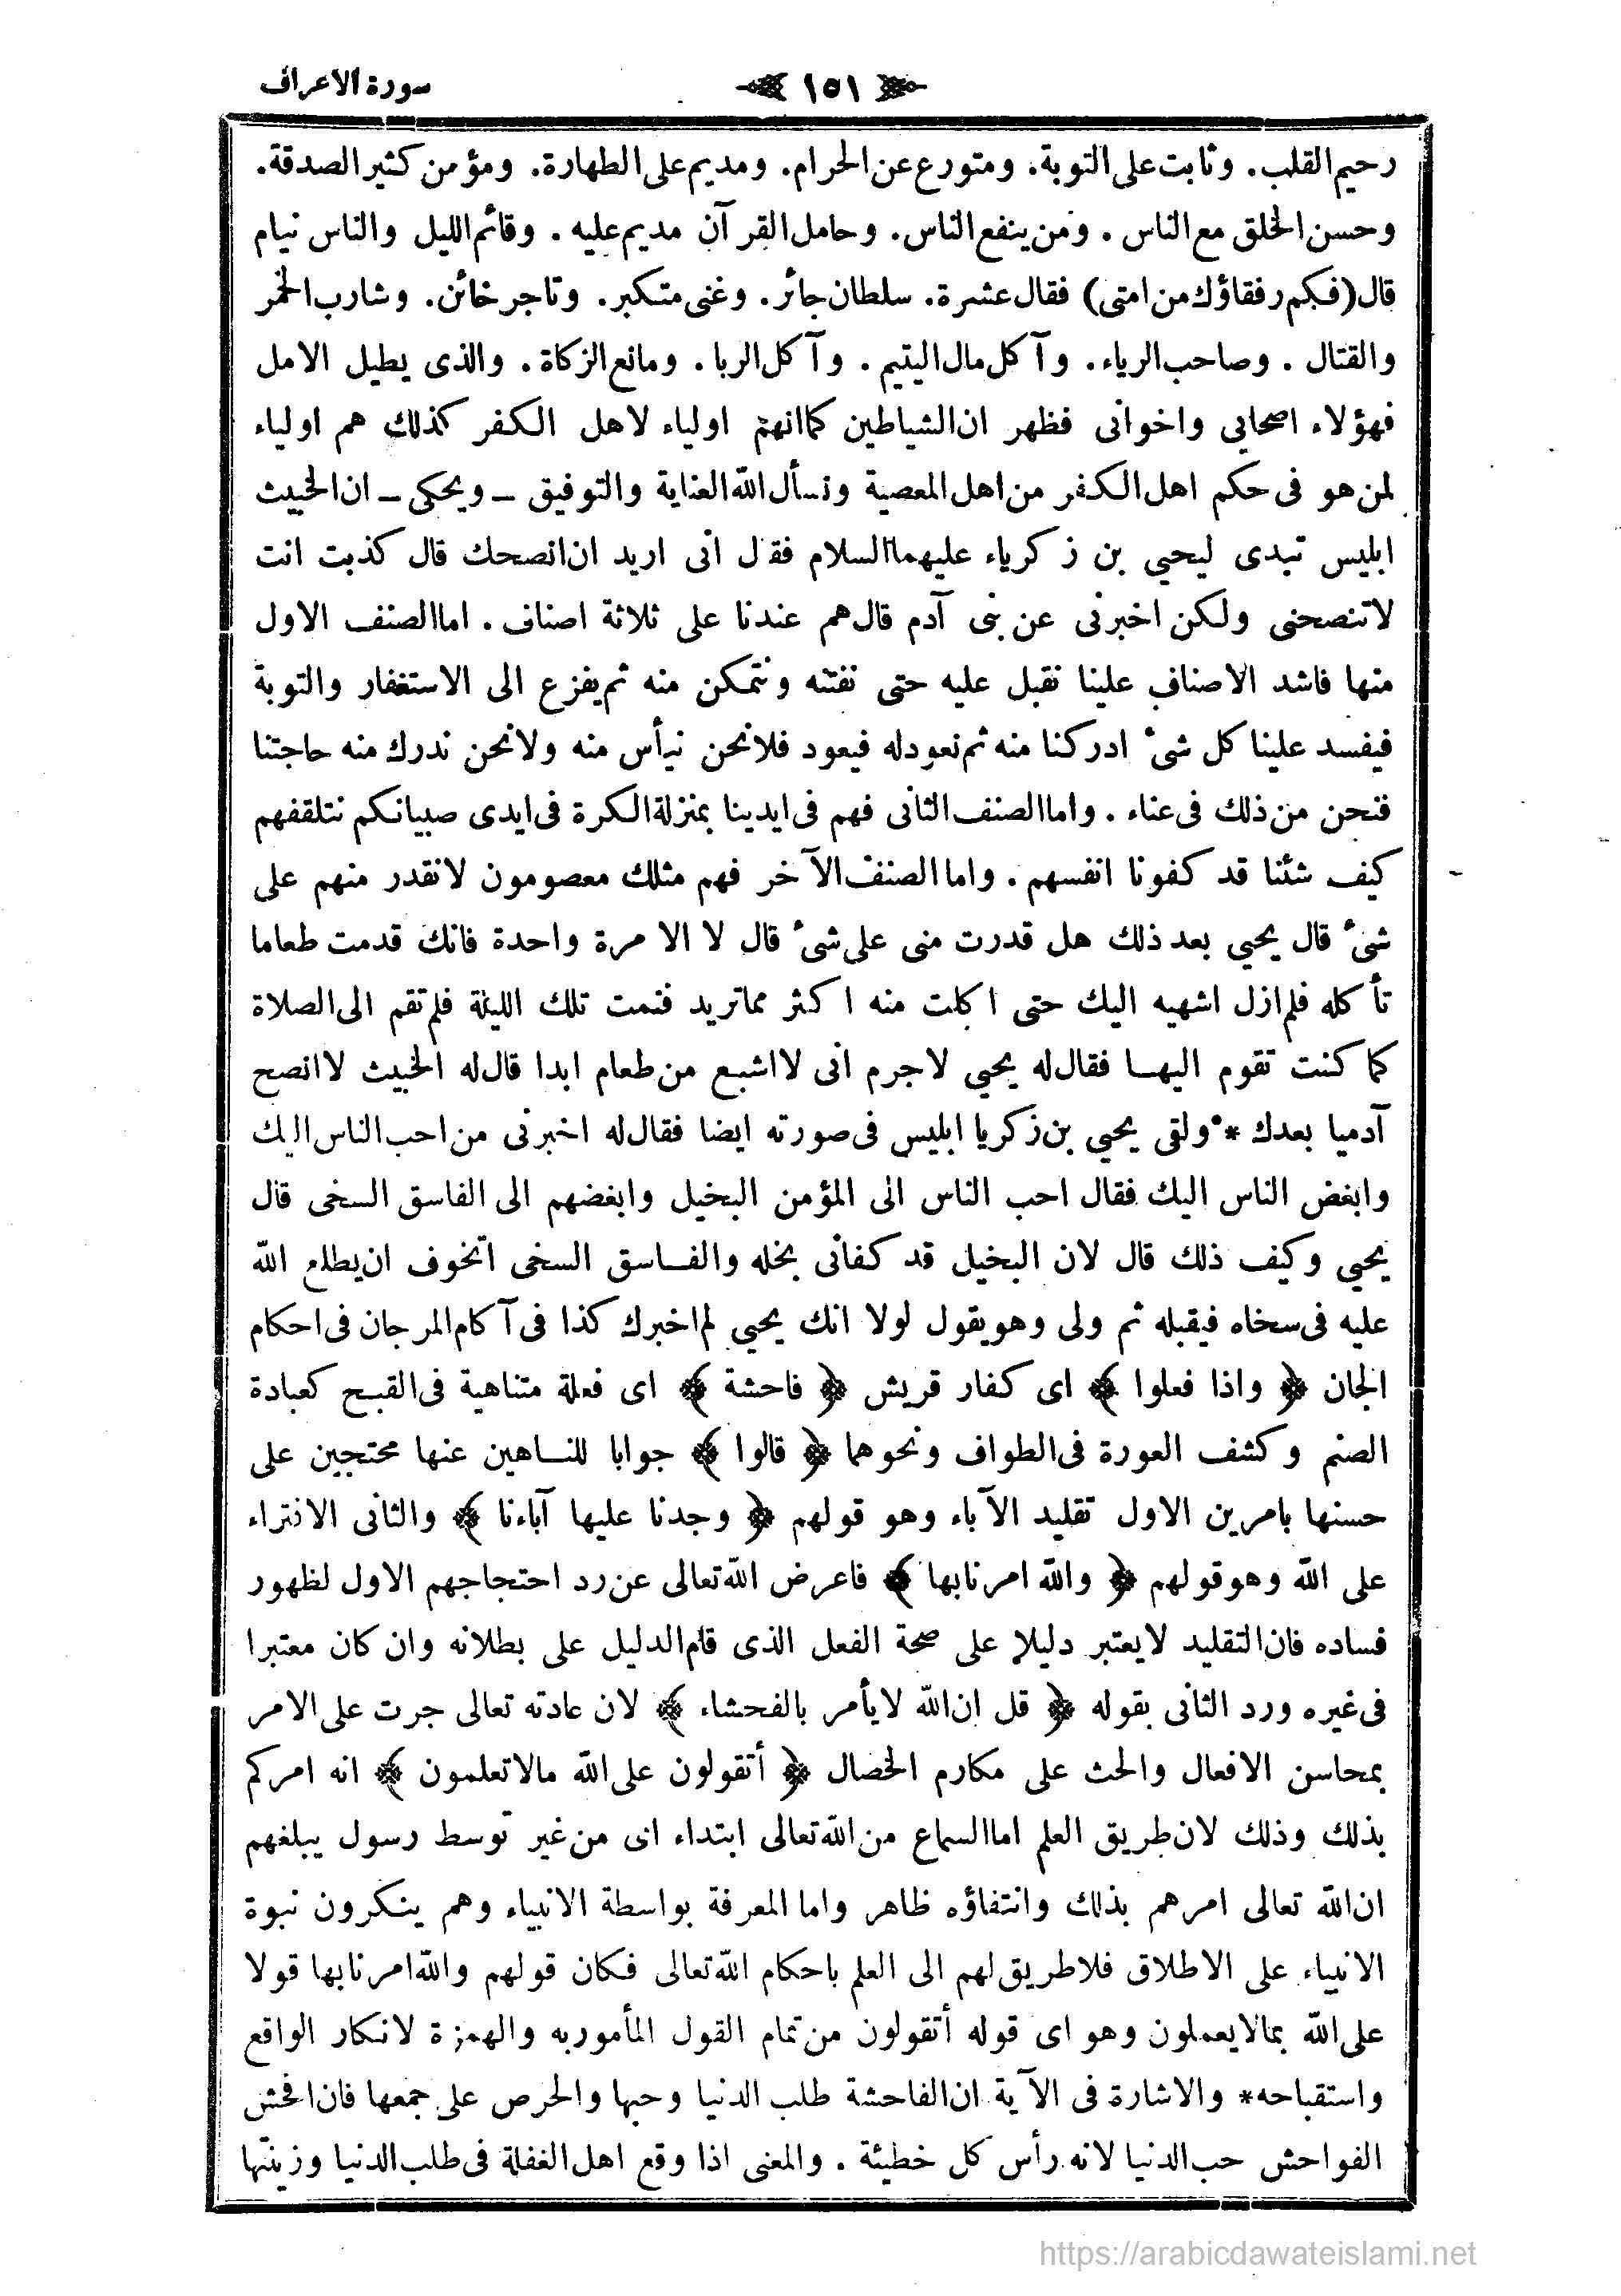 سورة الاعراف ١٥١
رحيم القلب. وثابت على التوبة. ومتورع عن الحرام. ومديم على الطهارة. ومؤمن كثير الصدقة.
وحسن الخلق مع الناس. ومن ينفع الناس. وحامل القرآن مديم عليه. وقائم الليل والناس نيام
قال (فكم رفقاؤك من امتى) فقال عشرة. سلطان جائر. وغنى متكبر. وتاجر خائن. وشارب الخمر
والقتال. وصاحب الرياء. وآكل مال اليتيم. وآكل الربا. ومانع الزكاة. والذى يطيل الامل
فهؤلاء اصحابى واخوانى فظهر ان الشياطين كما انهم اولياء لاهل الكفر كذلك هم اولياء
لمن هو فى حكم اهل الكفر من اهل المعصية ونسأل الله العناية والتوفيق ـ ويحكى ـ ان الخبيث
ابليس تبدى ليحيي بن زكرياء عليهما السلام فقال انى اريد ان انصحك قال كذبت انت
لا تنصحنى ولكن اخبرنى عن بنى آدم قال هم عندنا على ثلاثة اصناف. اما الصنف الاول
منها فاشد الاصناف علينا نقبل عليه حتى نفتنه ونتمكن منه ثم يفزع الى الاستغفار والتوبة
فيفسد علينا كل شىء ادركنا منه ثم نعود له فيعود فلا نحن نيأس منه ولا نحن ندرك منه حاجتنا
فنحن من ذلك فى عناء. واما الصنف الثانى فهم فى ايدينا بمنزلة الكرة فى ايدى صبيانكم نتلقفهم
كيف شئنا قد كفونا انفسهم. واما الصنف الآخر فهم مثلك معصومون لا نقدر منهم على
شىء قال يحيي بعد ذلك هل قدرت منى على شىء قال لا الا مرة واحدة فانك قدمت طعاما
تأكله فلم ازل اشهيه اليك حتى اكلت منه اكثر مما تريد فنمت تلك الليلة فلم تقم الى الصلاة
كما كنت تقوم اليها فقال له يحيي لا جرم انى لا اشبع من طعام ابدا قال له الخبيث لا انصح
آدميا بعدك * ولقى يحيي بن زكريا ابليس فى صورته ايضا فقال له اخبرنى من احب الناس اليك
وابغض الناس اليك فقال احب الناس الى المؤمن البخيل وابغضهم الى الفاسق السخى قال
يحيي وكيف ذلك قال لان البخيل قد كفانى بخله والفاسق السخى اتخوف ان يطلع الله
عليه فى سخاه فيقبله ثم ولى وهو يقول لولا انك يحيي لم اخبرك كذا فى آكام المرجان فى احكام
الجان ﴿ واذا فعلوا ﴾ اى كفار قريش ﴿ فاحشة ﴾ اى فعلة متناهية فى القبح كعبادة
الصنم وكشف العورة فى الطواف ونحوهما ﴿ قالوا ﴾ جوابا للناهين عنها محتجين على
حسنها بامرين الاول تقليد الآباء وهو قولهم ﴿ وجدنا عليها آباءنا ﴾ والثانى الافتراء
على الله وهو قولهم ﴿ والله امرنا بها ﴾ فاعرض الله تعالى عن رد احتجاجهم الاول لظهور
فساده فان التقليد لا يعتبر دليلا على صحة الفعل الذى قام الدليل على بطلانه وان كان معتبرا
فى غيره ورد الثانى بقوله ﴿ قل ان الله لا يأمر بالفحشاء ﴾ لان عادته تعالى جرت على الامر
بمحاسن الافعال والحث على مكارم الخصال ﴿ أتقولون على الله ما لا تعلمون ﴾ انه امركم
بذلك وذلك لان طريق العلم اما السماع من الله تعالى ابتداء اى من غير توسط رسول يبلغهم
ان الله تعالى امرهم بذلك وانتفاؤه ظاهر واما المعرفة بواسطة الانبياء وهم ينكرون نبوة
الانبياء على الاطلاق فلا طريق لهم الى العلم باحكام الله تعالى فكان قولهم والله امرنا بها قولا
على الله بما لا يعملون وهو اى قوله أتقولون من تمام القول المأمور به والهمزة لانكار الواقع
واستقباحه* والاشارة فى الآية ان الفاحشة طلب الدنيا وحبها والحرص على جمعها فان افحش
الفواحش حب الدنيا لانه رأس كل خطيئة. والمعنى اذا وقع اهل الغفلة فى طلب الدنيا وزينتها
https://arabicdawateislami.net